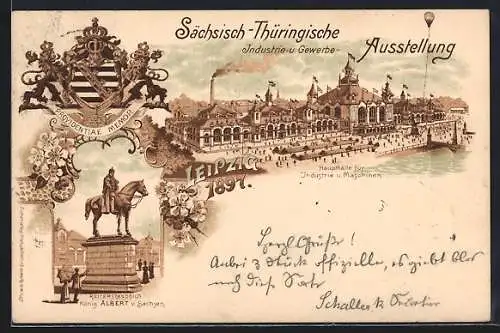 Sächsisch-Thüringische
Industrie- u. Gewerbe-
Ausstellung
PROVIDENTIAE MEMOR
LEIPZIG
1897.
Haupthalle für
Industrie u. Maschinen
REITERSTANDBILD
König ALBERT v. Sachsen.
Herzl. Grüße!
Anbei 3 Stück offizielle, es giebt aber
noch viel Sorten